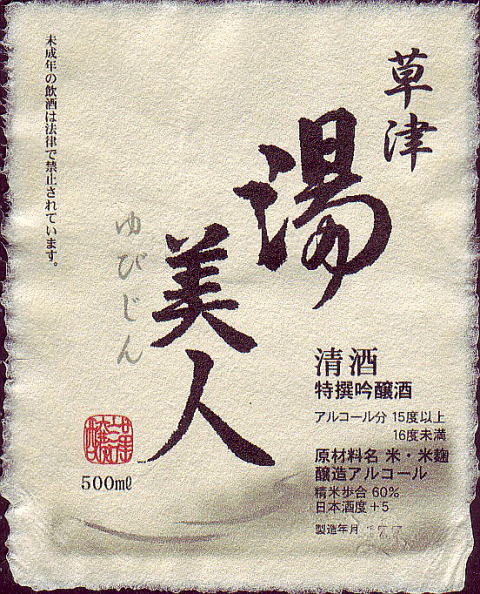 草津
湯美人
ゆびじん
未成年の飲酒は法律で禁止されています。
清酒
特撰吟醸酒
アルコール分 15度以上
16度未満
原材料名 米・米麹
醸造アルコール
精米歩合 60%
日本酒度+5
製造年月
500ml